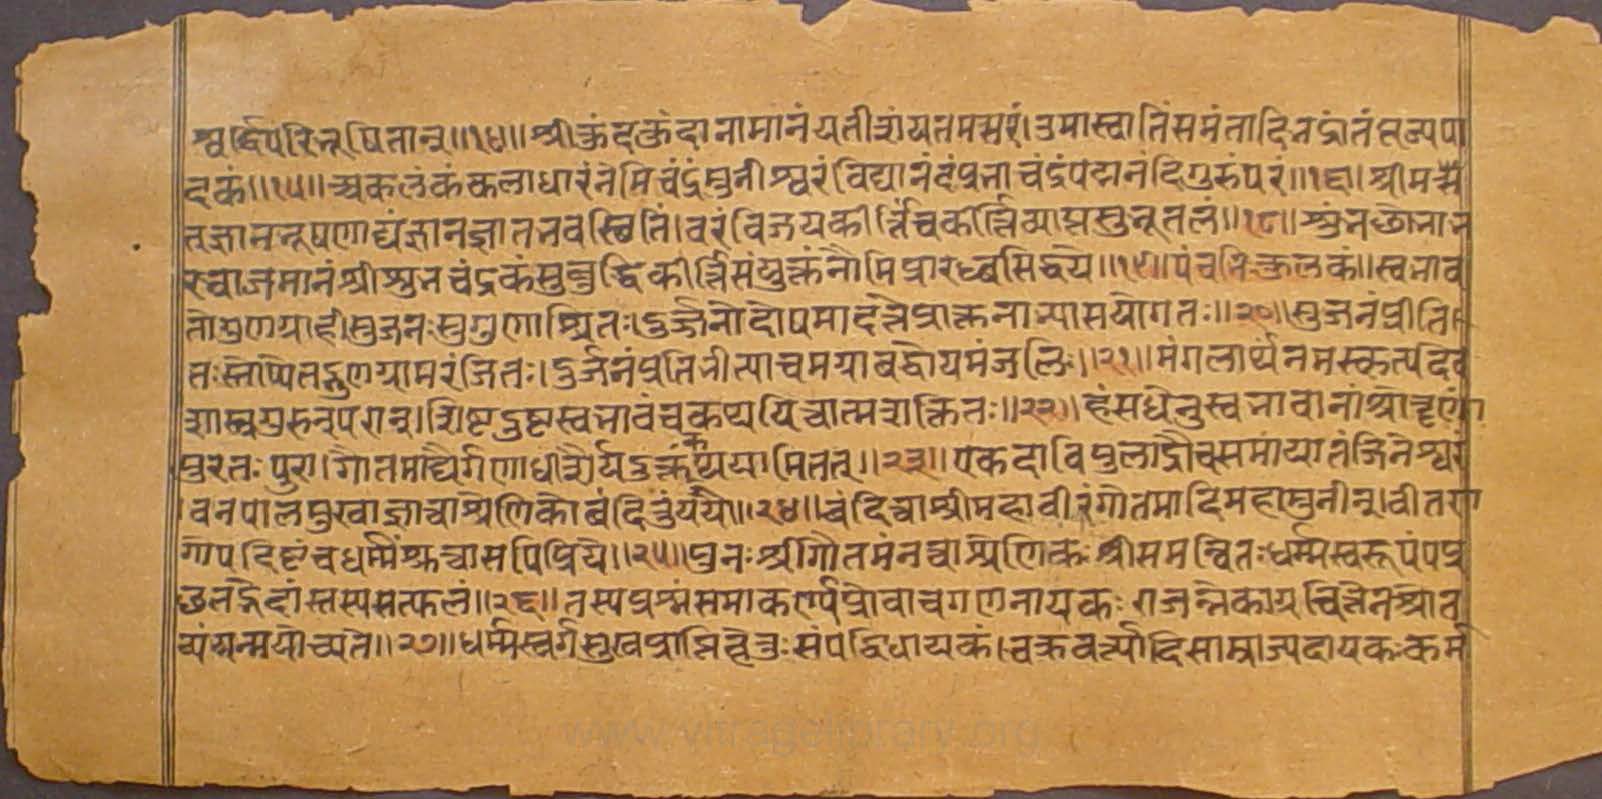 श्वर्द्धिपरिभूषितान्॥१४॥श्रीकुंदकुंदानामानंयतीशंयतमत्सरं।उमास्वातिंसमंतादिभद्रांतंपूज्यपा
दकं॥१५॥अकलंकंकलाधारंनेमिचंद्रंमुनीश्वरंविद्यानंदंप्रभाचंद्रंपद्मनंदिगुरुंपरं॥१६॥श्रीमत्स
ज्ञानभूषणाद्यंज्ञानज्ञातनवस्थितिं।वरंविजयकीर्त्तिंचकीर्त्तिव्याप्तसुभूतलं॥१८॥शुंभछोभाभ
रभ्राजमानंश्रीशुभचंद्रकंसुबुद्धिकीर्त्तिसंयुक्तंनौमिप्रारब्धसिद्धये॥१९॥पंचभिःकुलकं॥स्वभाव
तोगुणग्राही।सुजनःसुगुणाश्रितः।दुर्जनोदोषमादत्तेप्राक्तनाभ्यासयोगतः॥२०॥सुजनंप्रीति
तःस्तोष्येतद्गुणग्रामरंजितः।दुर्जनंप्रतिभीत्याचमयाबद्धोयमंजलिः॥२१॥मंगलार्थंनमस्कृत्यदेव
शास्त्रगुरुन्परान्।शिष्टदुष्टस्वभावंचकथयित्वात्मशक्तितः॥२२॥हंसधेनुस्वभावानांश्रोतृणां
पुरतःपुरा।गौतमाद्यैर्गणाधीशैर्यदुक्तंकथयामितत्॥२३॥एकदाविपुलाद्रौचसमायातंजिनेश्वरं
वनपालमुखाज्ञात्वाश्रेणिकोबंदितुंययौ॥२४॥बंदित्वाश्रीमहावीरंगौतमादिमहामुनीन्।वीतरा
गोपदिष्टंचधर्म्मंश्रुत्वासपिप्रिये॥२५॥पुनःश्रीगौतमंनत्वाश्रेणिकःश्रीसमन्वितःधर्म्मस्वरूपंपप्र
छतद्भेदांस्तस्यसत्फलं॥२६॥तस्यप्रश्नंसमाकर्ण्यप्रोवाचगणनायकःराजन्नेकाग्रचित्तेनश्रोत
व्यंयन्मयोच्यते॥२७॥धर्म्मस्वर्गसुखप्राप्तिहेतुःसंपद्विधायकं।चक्रवर्त्त्यादिसाम्राज्यदायकःकर्म
www.vitragelibrary.org